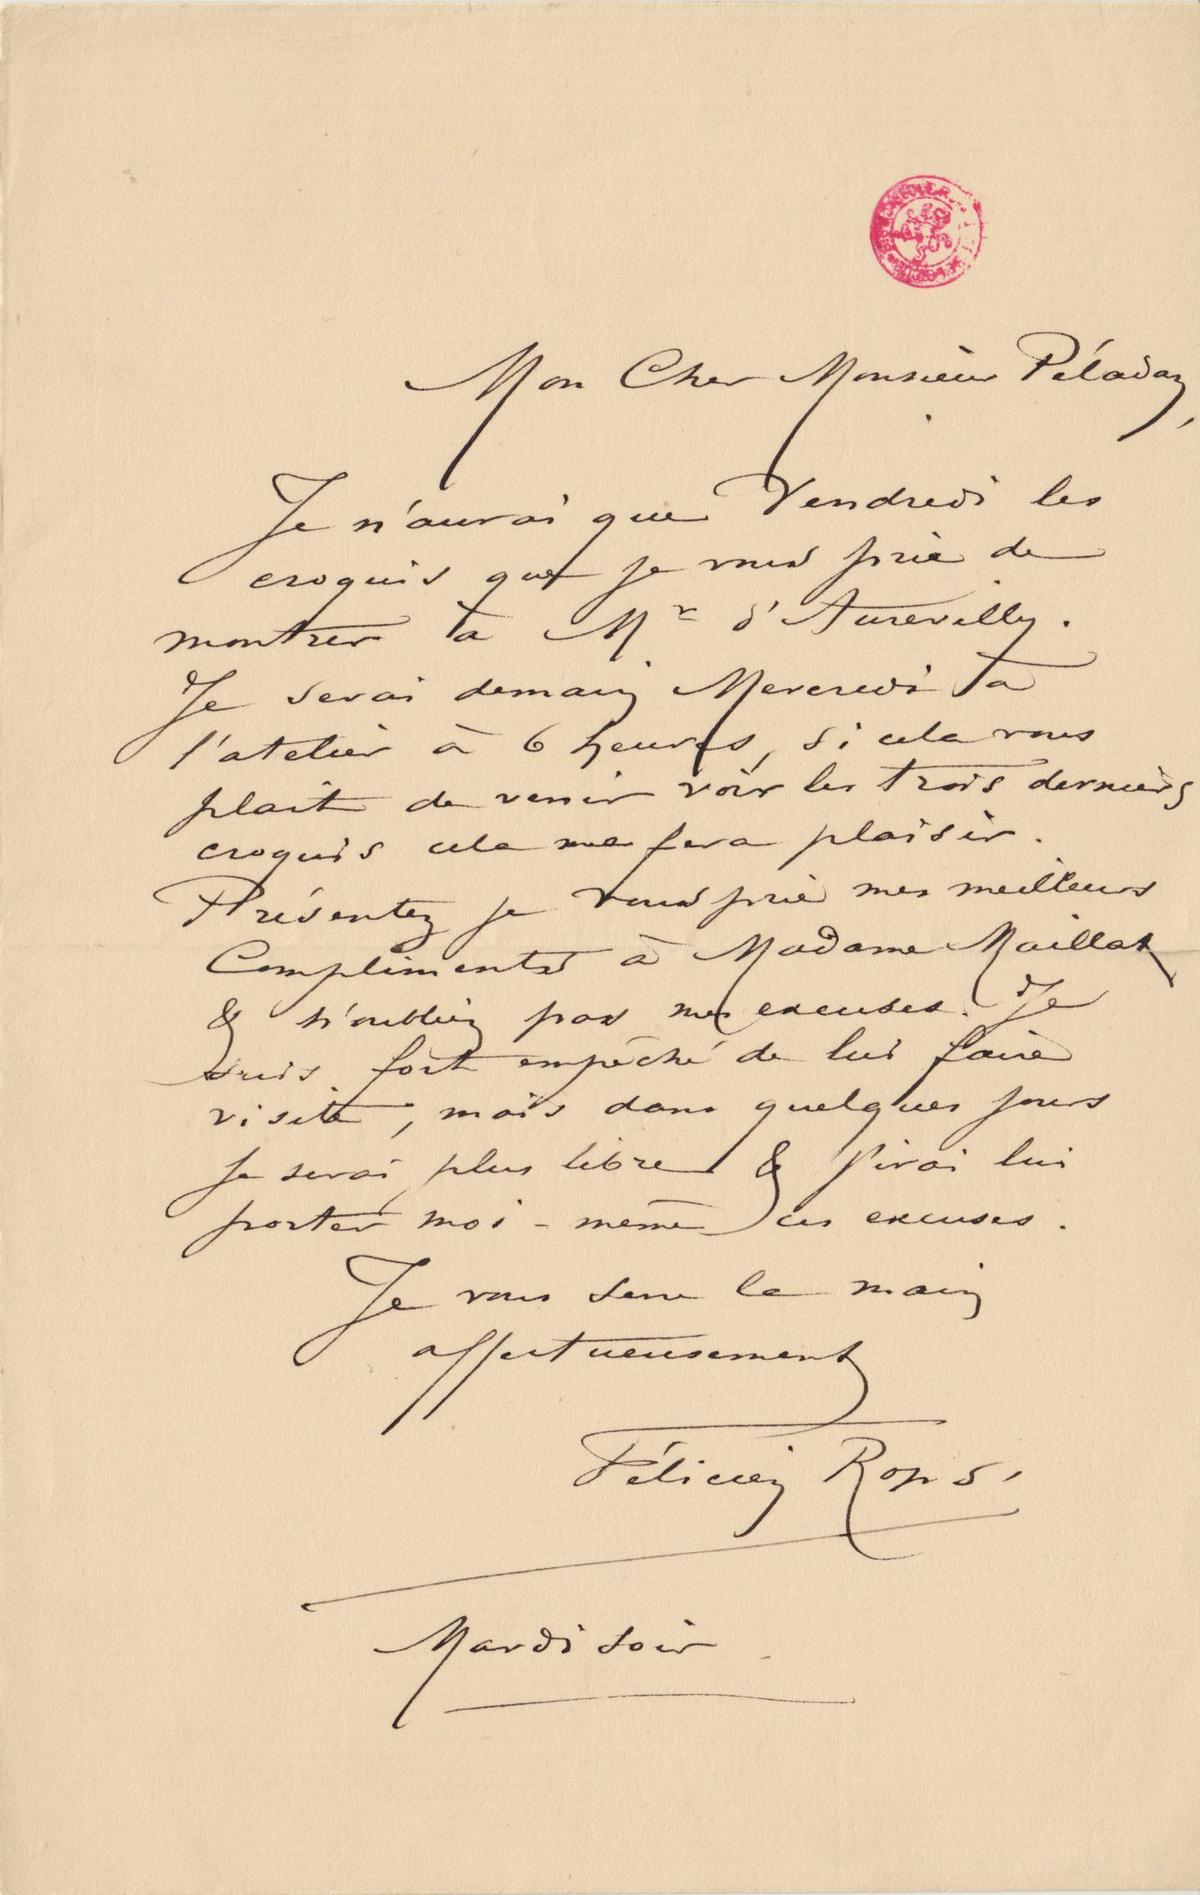 Mon Cher Monsieur Péladan,
Je n'aurai que Vendredi les
croquis que je vous prie de
montrer à Mr d'Aurevilly.
Je serai demain Mercredi à
l'atelier à 6 heures, si cela vous
plait de venir voir les trois derniers
croquis cela me fera plaisir.
Présentez je vous prie mes meilleurs
Compliments à Madame Maillat
& n'oubliez pas mes excuses. Je
suis fort empêché de lui faire
visite, mais dans quelques jours
je serai plus libre & j'irai lui
porter moi-même ces excuses.
Je vous serre la main
affectueusement
Félicien Rops
Mardi soir